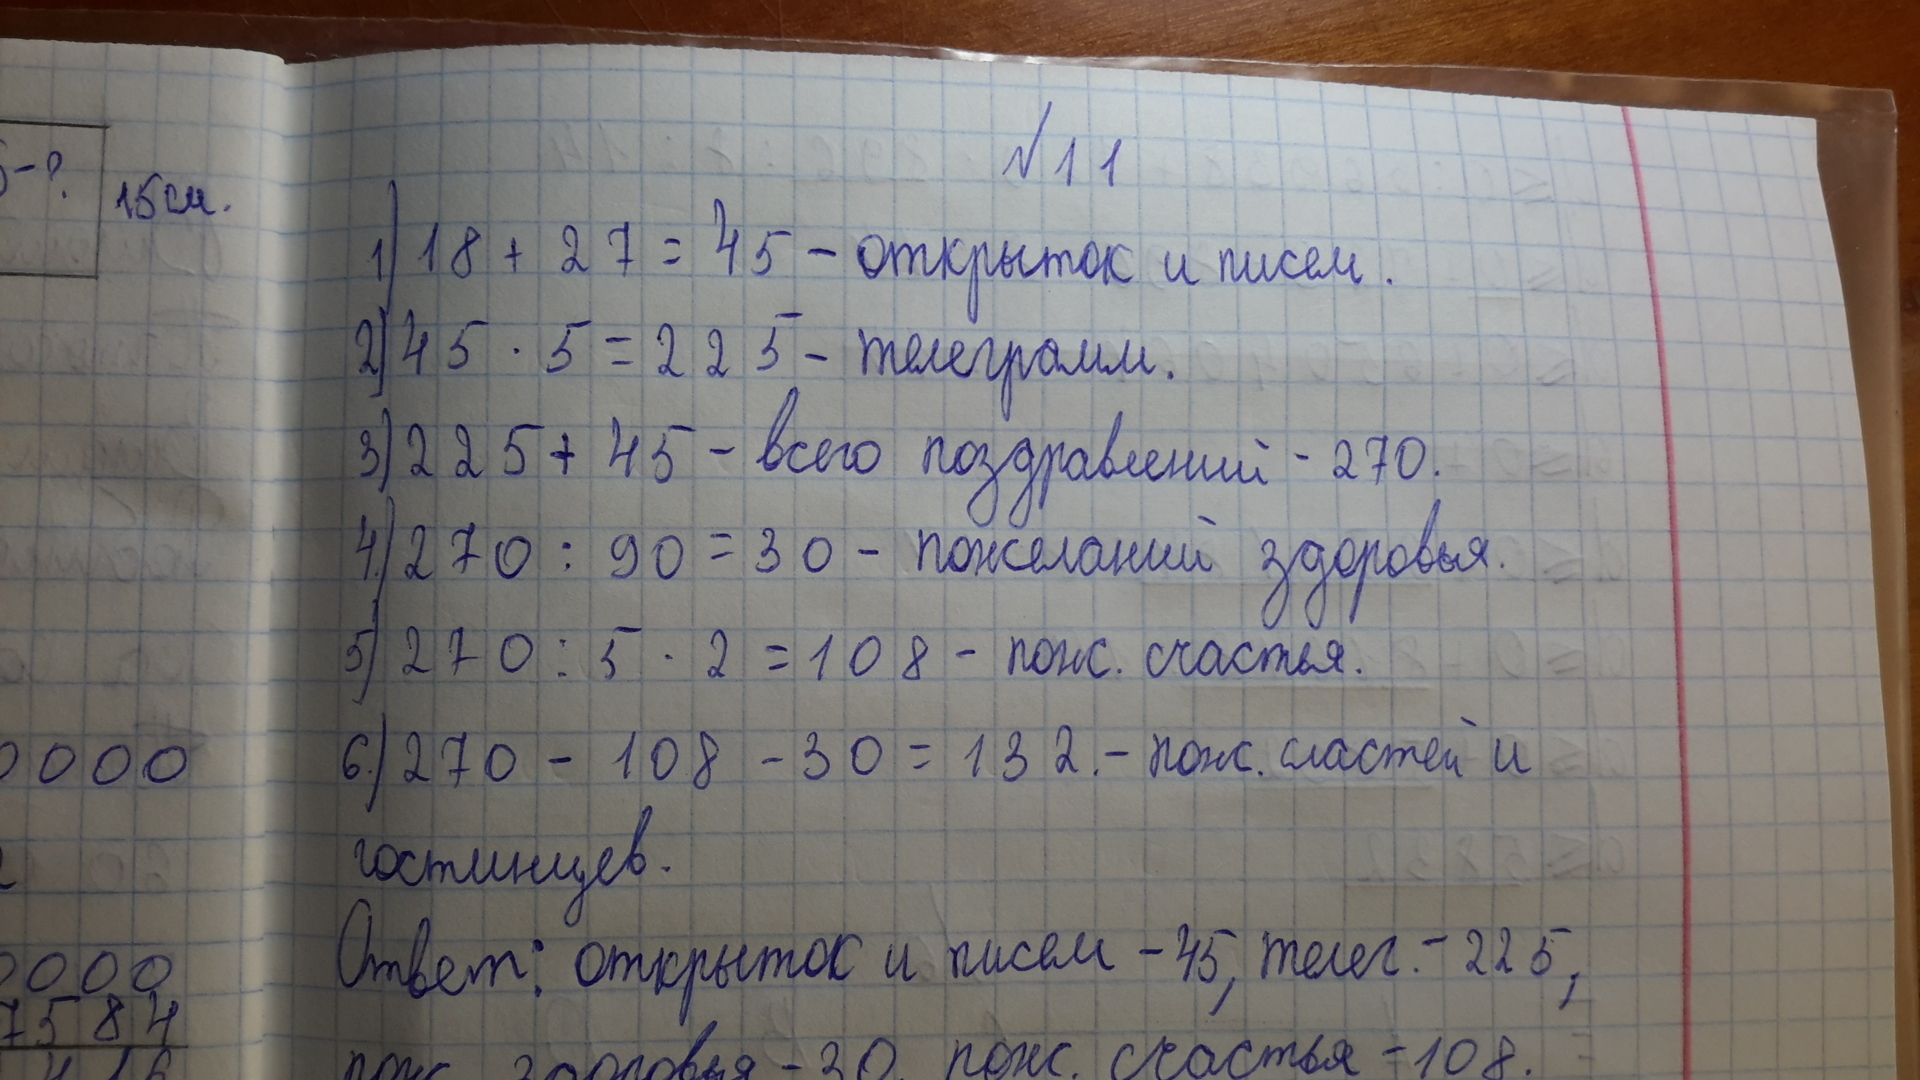 -?
15см.
№11
1) 18 + 27 = 45 - открыток и писем.
2) 45 · 5 = 225 - телеграмм.
3) 225 + 45 - всего поздравлений - 270.
4.) 270 : 90 = 30 - пожеланий здоровья.
5) 270 : 5 · 2 = 108 - пож. счастья.
6.) 270 - 108 - 30 = 132. - пож. сластей и
0000
гостинцев.
Ответ: открыток и писем - 45, телег. - 225,
0000
7584
пож. здоровья - 30, пож. счастья - 108.
416